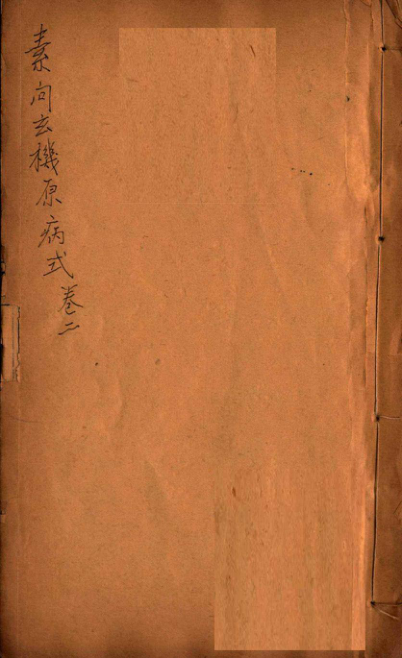 素问玄機原病式卷二